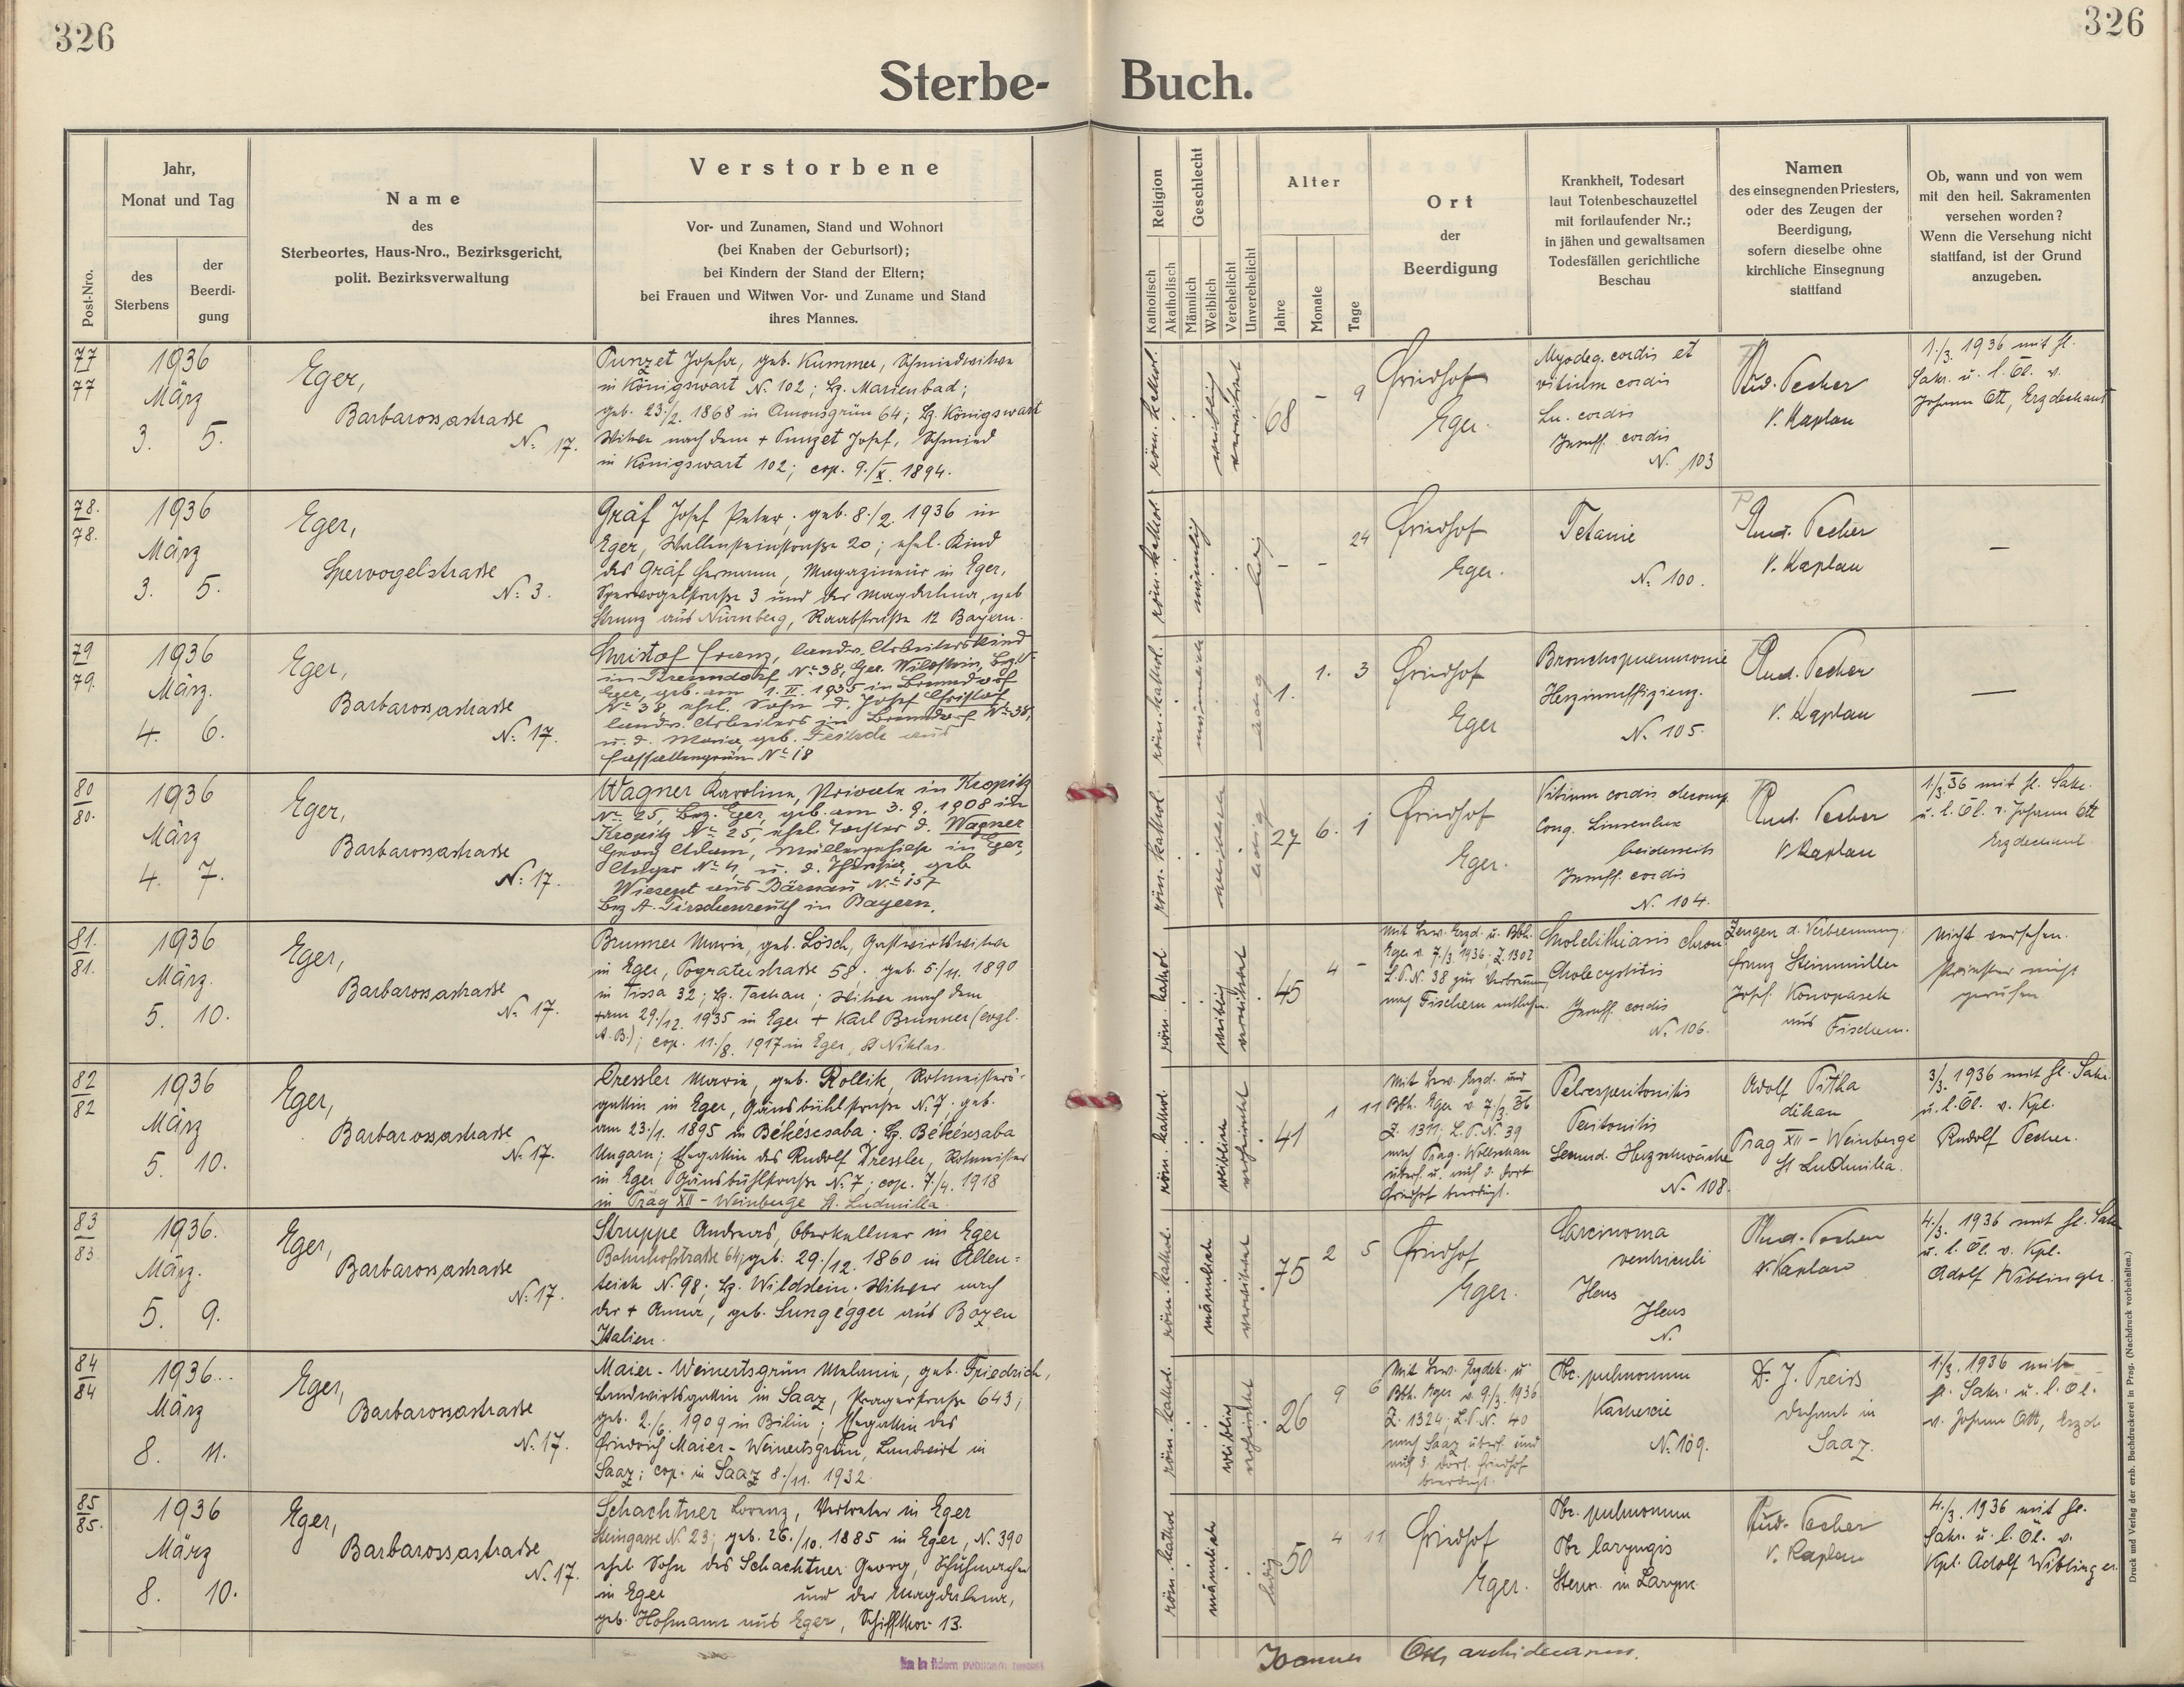 326
326
Sterbe- Buch.
Post-Nro.
Jahr,
Monat und Tag
des
Sterbens
der
Beerdi-
gung
Name
des
Sterbeortes, Haus-Nro., Bezirksgericht,
polit. Bezirksverwaltung
Verstorbene
Vor- und Zunamen, Stand und Wohnort
(bei Knaben der Geburtsort);
bei Kindern der Stand der Eltern;
bei Frauen und Witwen Vor- und Zuname und Stand
ihres Mannes.
Religion
Katholisch
Akatholisch
Geschlecht
Männlich
Weiblich
Verehelicht
Unverehelicht
Alter
Jahre
Monate
Tage
Ort
der
Beerdigung
Krankheit, Todesart
laut Totenbeschauzettel
mit fortlaufender Nr.;
in jähen und gewaltsamen
Todesfällen gerichtliche
Beschau
Namen
des einsegnenden Priesters,
oder des Zeugen der
Beerdigung,
sofern dieselbe ohne
kirchliche Einsegnung
stattfand
Ob, wann und von wem
mit den heil. Sakramenten
versehen worden?
Wenn die Versehung nicht
stattfand, ist der Grund
anzugeben.
77
77
1936
März
3. 5.
Eger,
Barbarossastraße
N: 17.
Punzet Josefa, geb. Kummer, Schmiedwitwe
in Königswart N. 102; Bz. Marienbad;
geb. 23./2. 1868 in Amonsgrün 64; Bz. Königswart
Witwe nach dem + Punzet Josef, Schmied
in Königswart 102; cop. 9./X. 1894.
röm. kathol.
weiblich
verwitwet
68 - 9
Friedhof
Eger.
Myodeg. cordis et
vitium cordis
cordis
Insuff. cordis
N. 103
Rud. Pecher
V. Kaplan
1./3. 1936 mit hl.
Sakr. u. l. Öl. v.
Johann Ott, Erzdechant
78.
78.
1936
März
3. 5.
Eger,
Spervogelstraße
N: 3.
Gräf Josef Peter; geb. 8./2. 1936 in
Eger, Wallensteinstraße 20; ehel. Kind
des Gräf Hermann, Magazineur in Eger,
Spervogelstraße 3 und der Magdalena, geb
Strunz aus Nürnberg, Raabstraße 12 Bayern.
röm. kathol
männlich
ledig
- - 24
Friedhof
Eger.
Tetanie
N: 100.
Rud. Pecher
V. Kaplan
—
79
79.
1936
März.
4. 6.
Eger,
Barbarossastraße
N: 17.
Christof Franz, landw. Arbeiterskind
in Brenndorf N° 38, Ger. Wildstein, Bez.
Eger, geb. am 1. II. 1935 in Brenndorf
N° 38, ehel. Sohn d. Josef Christof
landw. Arbeiters in Brenndorf N° 38,
u. d. Maria, geb.
N° 18
röm. kathol.
männlich
ledig
1. 1. 3
Friedhof
Eger
Bronchopneumonie
Herzinsuffizienz.
N. 105.
Rud. Pecher
V. Kaplan
—
80
80.
1936
März
4. 7.
Eger,
Barbarossastraße
N: 17.
Wagner Karolina, Private in Kropitz
N° 25, Bez. Eger, geb. am 3. 9. 1908 in
Kropitz N° 25, ehel. Tochter d. Wagner
Georg Adam, Müllergehilfe in Eger,
Anger N° 4, u. d. Theresia, geb
Wiesent aus Bärnau N° 157
Bez A. Tirschenreuth in Bayern.
röm. kathol.
weiblich
ledig
27 6. 1
Friedhof
Eger.
Vitium cordis decomp.
Cong.
beiderseits
Insuff. cordis
N. 104.
Rud. Pecher
V. Kaplan
1/3. 36 mit hl. Sakr.
u. l. Öl. v. Johann Ott
Erzdechant
81.
81.
1936
März.
5. 10.
Eger,
Barbarossastraße
N: 17.
Brunner Maria, geb. Lösch, Gastwirtswitwe
in Eger, Pograterstraße 58; geb. 5./11. 1890
in Tissa 32; Bz. Tachau; Witwe nach dem
+ am 29./12. 1935 in Eger + Karl Brunner (evgl.
A. B.); cop. 11./8. 1917 in Eger, St Niklas.
röm. kathol
weiblich
verwitwet
45 4 -
Mit Bew. Erzd. u. Bbh.
Eger v. 7/3. 1936; Z. 1302
L.P.N. 38 zur Verbrennung
nach Fischern
Cholelithiasis chron
Cholecystitis
Insuff. cordis
N. 106.
Zeugen d. Verbrennung:
Franz Steinmüller
Josef Konopasek
aus Fischern.
Nicht versehen.
Priester nicht
gerufen
82
82
1936
März
5. 10.
Eger,
Barbarossastraße
N: 17.
Dressler Maria, geb. Rollik, Rotmeisters-
gattin in Eger, Gänsbühlstraße N. 7; geb.
am 23./1. 1895 in Békéscsaba. Bz. Békéscsaba
Ungarn; Ehegattin des Rudolf Dressler, Rotmeister
in Eger Gänsbühlstraße N. 7; cop. 7./4. 1918
in Prag XII - Weinberge St. Ludmilla.
röm. kathol.
weiblich
verheiratet
41 1 11
Mit Bew. Erzd. und
Bbh. Eger v. 7/3. 36
Z. 1311; L.P.N. 39
nach Prag. Wolschan
überf. u. auf d. dort.
Friedhof beerdigt.
Pelveoperitonitis
Peritonitis
Secund. Herzschwäche
N. 108.
Adolf Pitha
děkan
Prag XII - Weinberge
St Ludmilla.
3/3. 1936 mit hl. Sakr.
u. l. Öl. v. Kpl.
Rudolf Pecher.
83
83.
1936.
März.
5. 9.
Eger,
Barbarossastraße
N: 17.
Struppe Andreas, Oberkellner in Eger
Bahnhofstraße 64; geb. 29./12. 1860 in Alten=
teich N. 98; Bz. Wildstein. Witwer nach
der + Anna, geb. Lungegger aus Bozen
Italien.
röm. kathol.
männlich
verwitwet
75 2 5
Friedhof
Eger.
Carcinoma
ventriculi
Ileus
Ileus
N.
Rud. Pecher
V. Kaplan
4./3. 1936 mit hl. Sakr
u. l. Öl. v. Kpl.
Adolf Wiblinger.
84
84
1936.
März
8. 11.
Eger,
Barbarossastraße
N: 17.
Maier - Weinertsgrün Melanie, geb. Friedrich,
Landwirtsgattin in Saaz, Pragerstraße 643;
geb. 2./6. 1909 in Bilin; Ehegattin des
Friedrich Maier - Weinertsgrün, Landwirt in
Saaz; cop. in Saaz 8./11. 1932.
röm. kathol.
weiblich
verheiratet
26 9 6
Mit Bew. Erzdek. u
Bbh. Eger v. 9/3. 1936
Z. 1324; L.P.N. 40
nach Saaz überf. und
auf d. dort. Friedhof
beerdigt.
Tbc. pulmonum
Kachexie
N. 109.
Dr. J. Preiss
Dechant in
Saaz.
1./3. 1936 mit
hl. Sakr. u. l. Öl.
v. Johann Ott, Erzd.
85
85.
1936
März
8. 10.
Eger,
Barbarossastraße
N. 17.
Schachtner Lorenz, Vertreter in Eger
Steingasse N. 23; geb. 26./10. 1885 in Eger, N. 390
ehel. Sohn des Schachtner Georg, Schuhmacher
in Eger und der Magdalena,
geb. Hofmann aus Eger, Schiffthor 13.
röm. kathol
männlich
ledig
50 4 11
Friedhof
Eger.
Tbc. pulmonum
Tbc laryngis
Stenos. in Larynx
Rud. Pecher
V. Kaplan
4./3. 1936 mit hl.
Sakr. u. l. Öl. v.
Kpl. Adolf Wiblinger
Joannes Ott archidecanus.
Druck und Verlag der erzb. Buchdruckerei in Prag. (Nachdruck vorbehalten.)